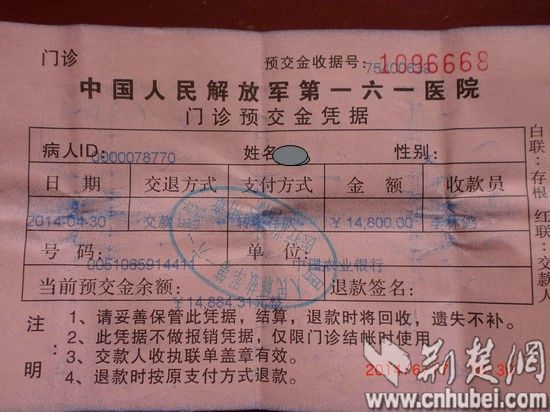 门诊 预交金收据号：75400639 1096668
中国人民解放军第一六一医院
门诊预交金凭据
病人ID：0000078770 姓名 性别：
日期 交退方式 支付方式 金额 收款员
2014-04-30 交款 转账 ￥14,800.00
号码： 单位：
0051065914414 中国农业银行
当前预交金余额： 退款签名：
￥14,884.31元
注明：
1、请妥善保管此凭据，结算，退款时将回收，遗失不补。
2、此凭据不做报销凭据，仅限门诊结帐时使用。
3、交款人收执联单盖章有效。
4、退款时按原支付方式退款。
白联：存根
红联：交款
荆楚网
www.cnhubei.com